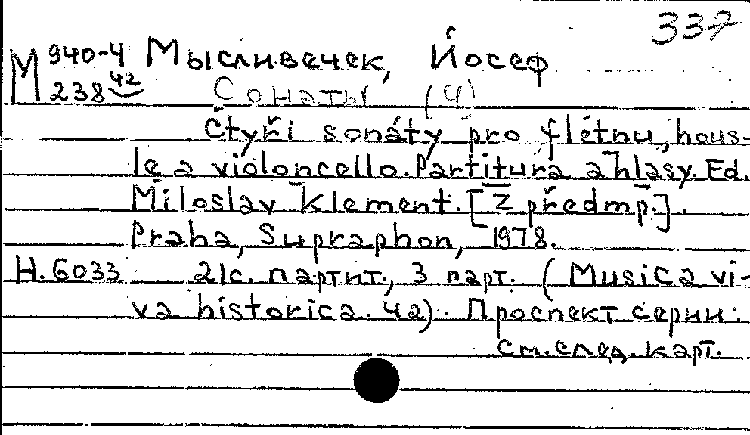 337
М 940-4 Мысливечек, Йосеф
238 42 Сонаты (4)
Čtyři sonáty pro flétnu, hous-
le a violoncello. Partitura a hlasy. Ed.
Miloslav Klement. [Z předmp.].
Praha, Supraphon, 1978.
Н. 6033 21с. партит., 3 парт. (Musica vi-
va historica. 42). Проспект серии:
см. след. карт.